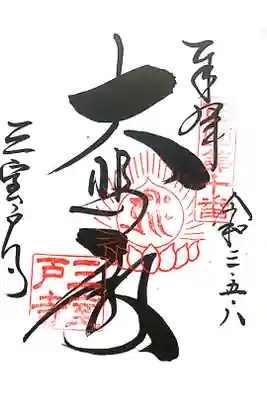 奉拝
西国十番
令和三・五・八
大
三室戸寺
三室戸寺